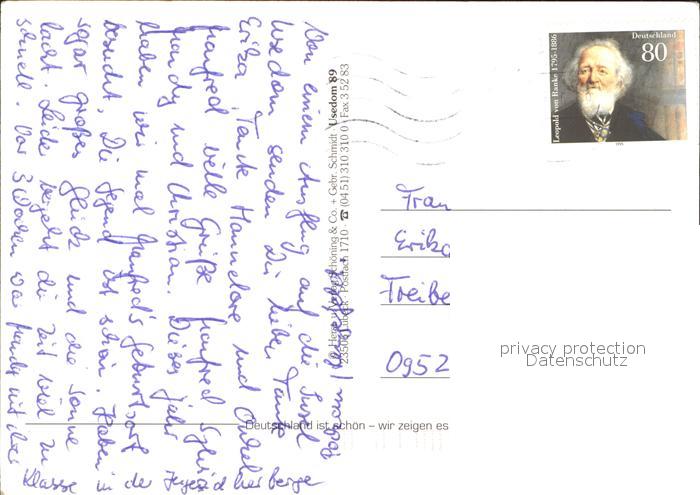 Von einem Ausflug auf die Insel
Usedom senden Dir lieber Tante
Erika, Tante Hannelore und Onkel
Manfred viele Grüße Manfred Sylvi
Mandy und Christian. Dieses Jahr
haben wir mal Manfred's Geburtsort
besucht. Die Gegend ist schön. Haben
sogar großes Glück und die Sonne
lacht. Leider vergeht die Zeit viel zu
schnell. Vor 3 Wochen war Mandy mit der
Klasse in der Jugendherberge
Schöning & Co. + Gebr. Schmidt · Usedom 89
Lübeck · Postfach 1710 · ☎ (0451) 310 310 · Fax 3 52 83
Deutschland ist schön – wir zeigen es
Leopold von Ranke 1795-1886
Deutschland
80
1995
Frau
Erika
Treibe
0952
privacy protection
Datenschutz